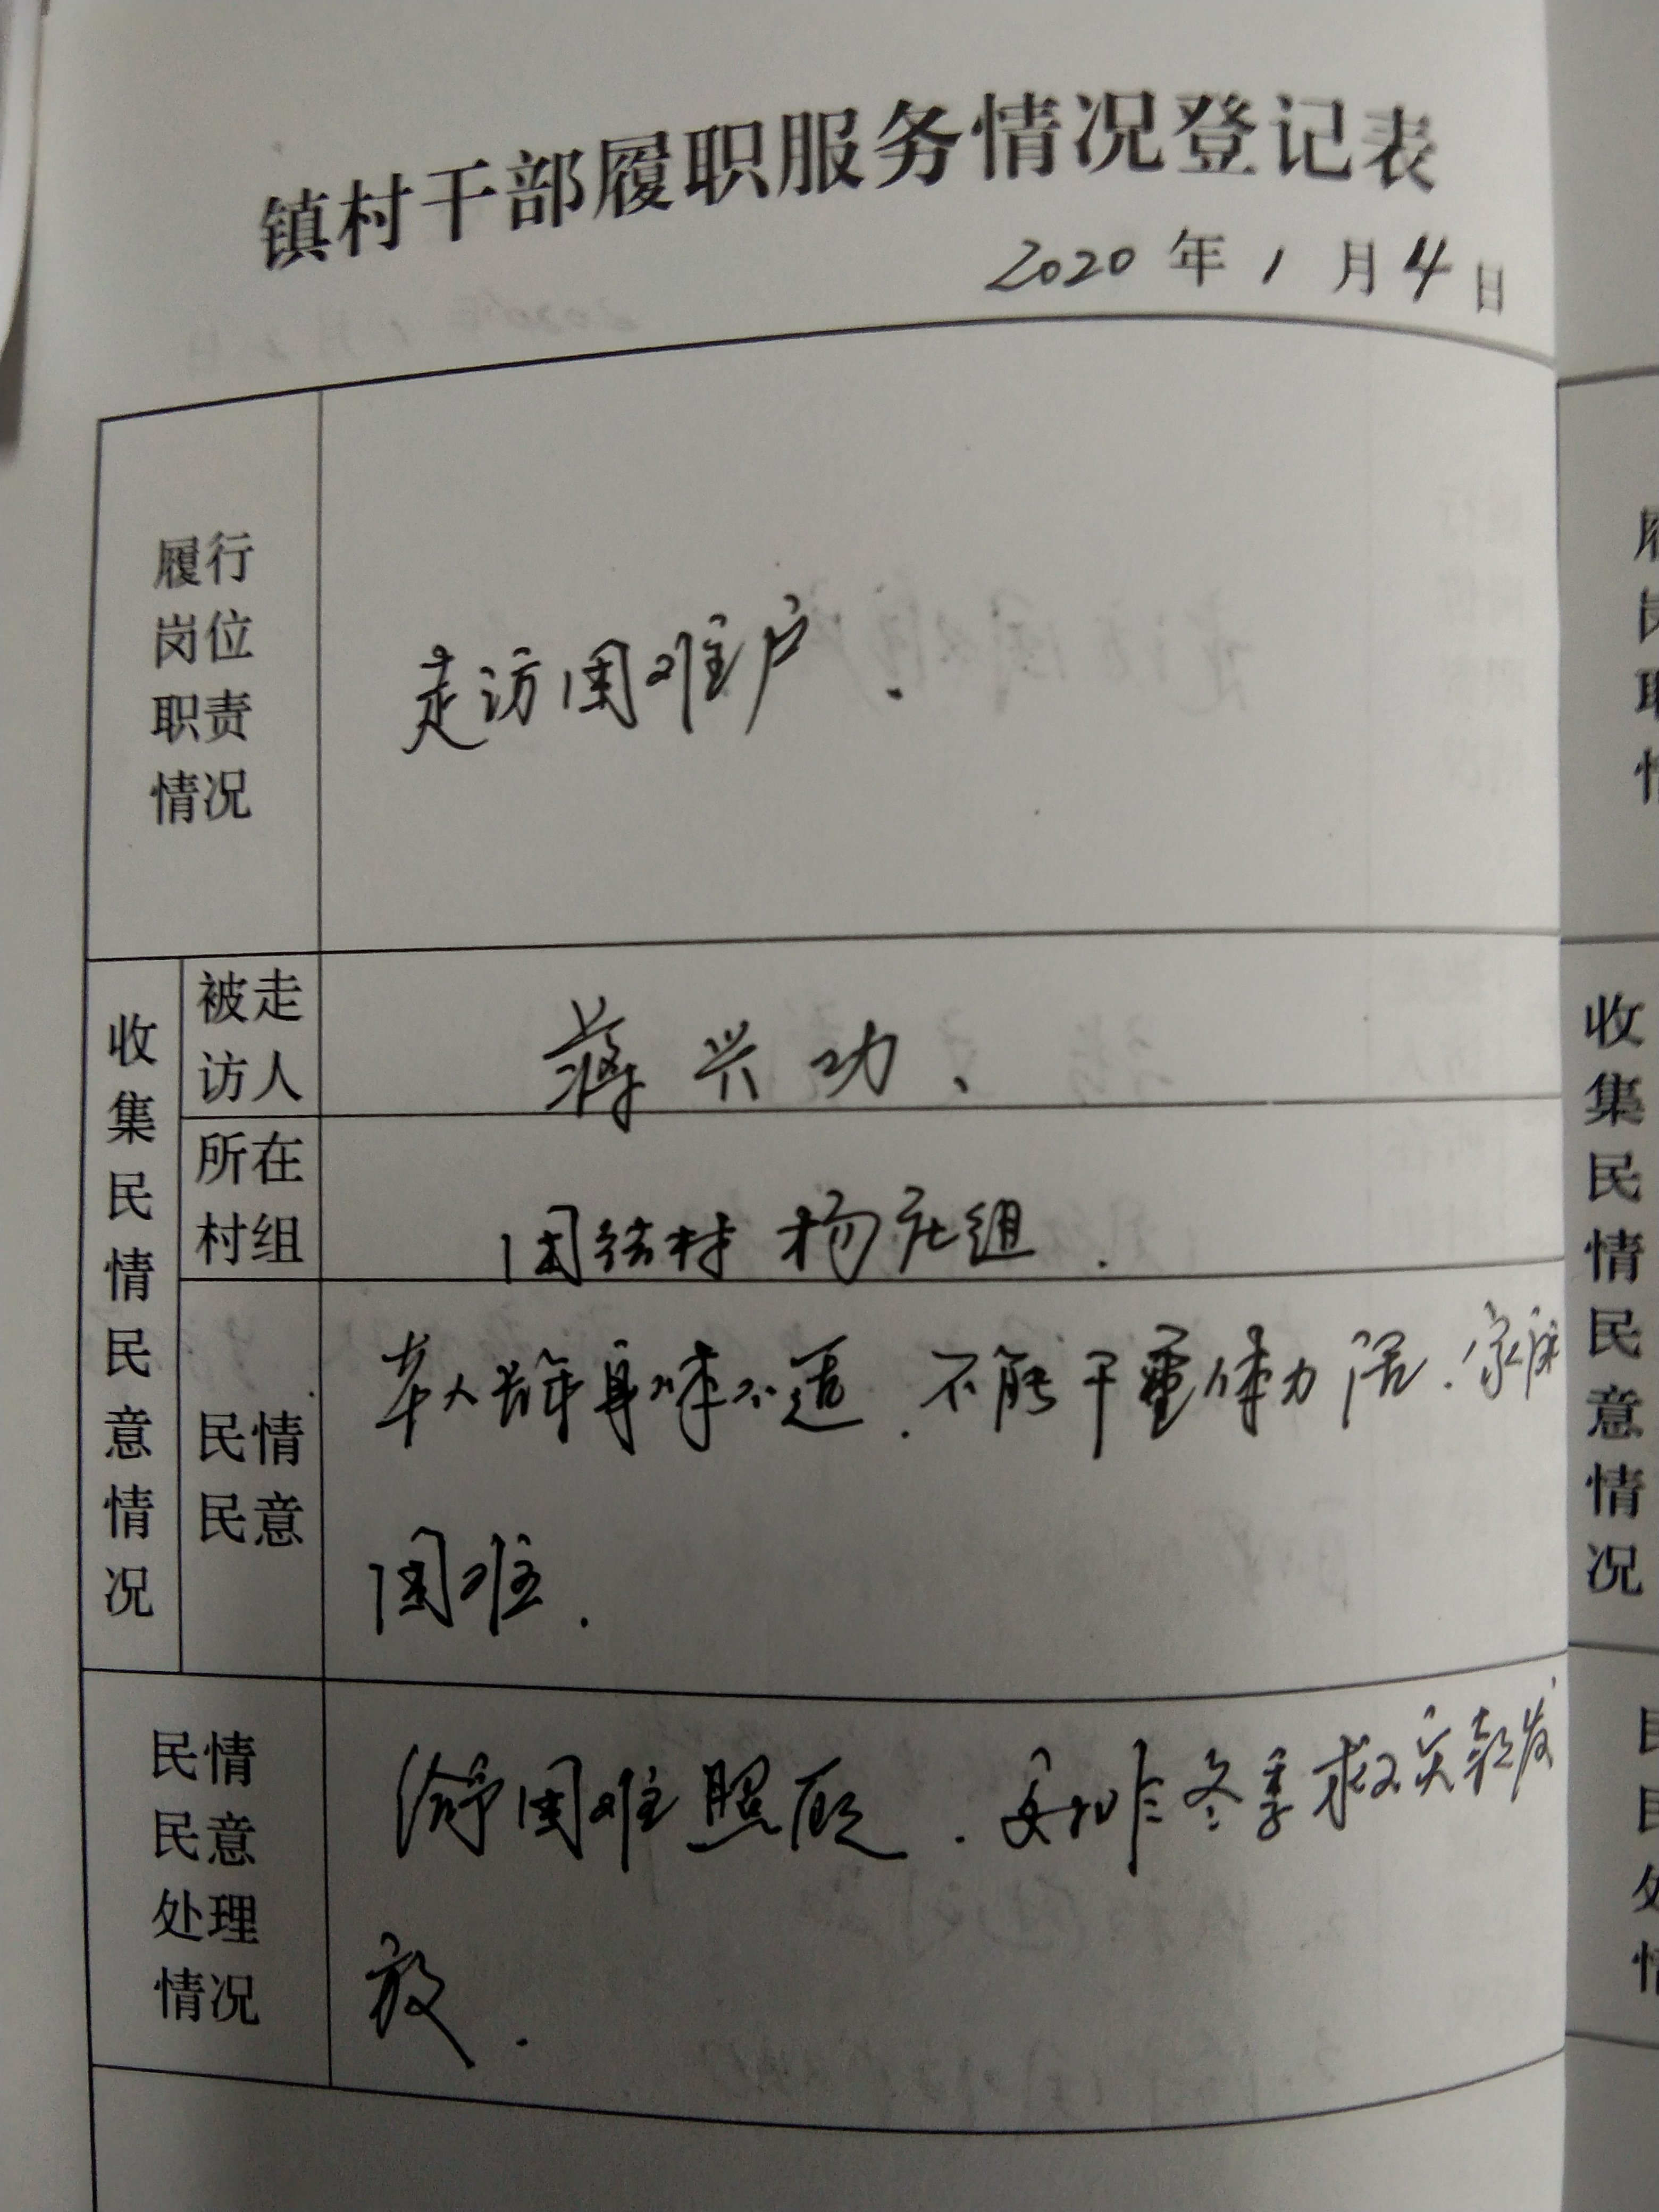 镇村干部履职服务情况登记表
2020年1月4日
履行
岗位
职责
情况
走访困难户.
收集民情民意情况
被走
访人
蒋兴功、
所在
村组
团结村杨庄组.
民情
民意
本人常年身体不适.不能干重体力活.家庭
困难.
民情
民意
处理
情况
给予困难照顾.冬季救灾款发
放.
收集民情民意情况